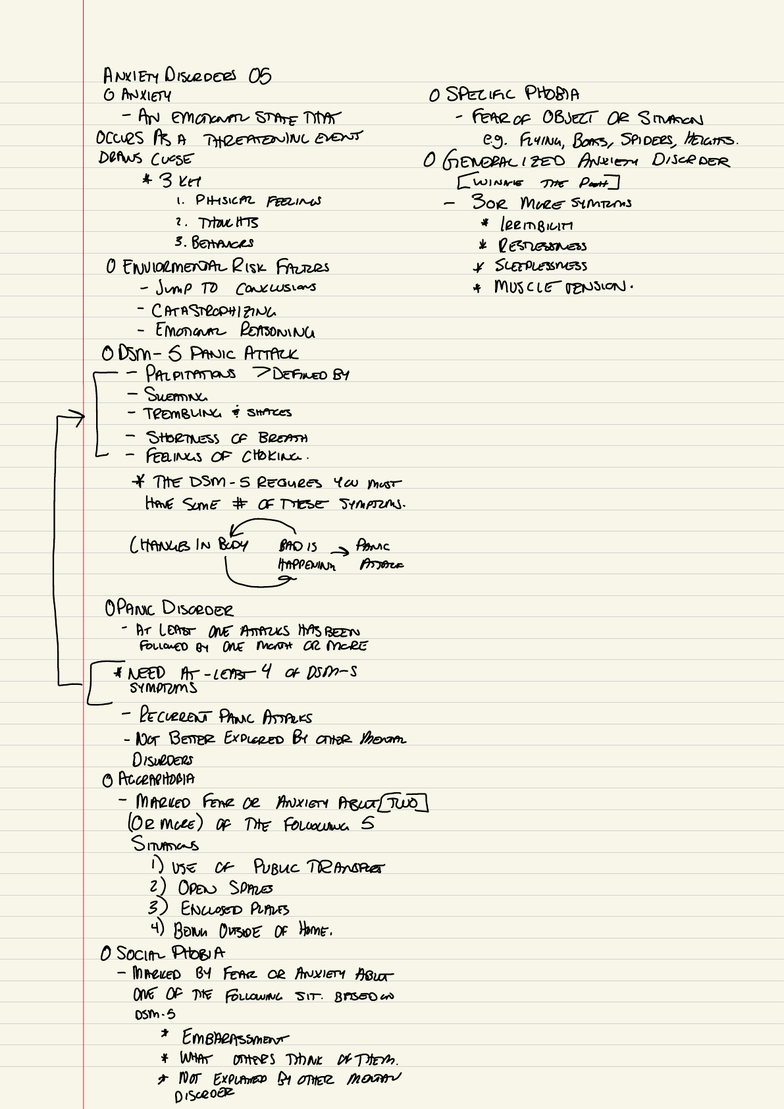 ANXIETY DISORDERS 05
O ANXIETY
- AN EMOTIONAL STATE THAT
OCCURS AS A THREATENING EVENT
DRAWS CLOSE
* 3 KEY
1. PHYSICAL FEELINGS
2. THOUGHTS
3. BEHAVIORS
O ENVIORMENTAL RISK FACTORS
- JUMP TO CONCLUSIONS
- CATASTROPHIZING
- EMOTIONAL REASONING
O DSM-5 PANIC ATTACK
- PALPITATIONS > DEFINED BY
- SWEATING
- TREMBLING & SHAKES
- SHORTNESS OF BREATH
- FEELINGS OF CHOKING.
* THE DSM-5 REQUIRES YOU MUST
HAVE SOME # OF THESE SYMPTOMS.
CHANGES IN BODY BAD IS → PANIC
HAPPENING ATTACK
O PANIC DISORDER
- AT LEAST ONE ATTACKS HAS BEEN
FOLLOWED BY ONE MONTH OR MORE
* NEED AT-LEAST 4 OF DSM-5
SYMPTOMS
- RECURRENT PANIC ATTACKS
- NOT BETTER EXPLORED BY OTHER MENTAL
DISORDERS
O AGORAPHOBIA
- MARKED FEAR OR ANXIETY ABOUT [TWO]
(OR MORE) OF THE FOLLOWING 5
SITUATIONS
1) USE OF PUBLIC TRANSPORT
2) OPEN SPACES
3) ENCLOSED PLACES
4) BEING OUTSIDE OF HOME.
O SOCIAL PHOBIA
- MARKED BY FEAR OR ANXIETY ABOUT
ONE OF THE FOLLOWING SIT. BASED ON
DSM-5
* EMBARASSMENT
* WHAT OTHERS THINK OF THEM.
* NOT EXPLAINED BY OTHER MENTAL
DISORDER
O SPECIFIC PHOBIA
- FEAR OF OBJECT OR SITUATION
e.g. FLYING, BOATS, SPIDERS, HEIGHTS.
O GENERALIZED ANXIETY DISORDER
[WINNIE THE POOH]
- 3 OR MORE SYMPTOMS
* IRRITIBILITY
* RESTLESSNESS
* SLEEPLESSNESS
* MUSCLE TENSION.